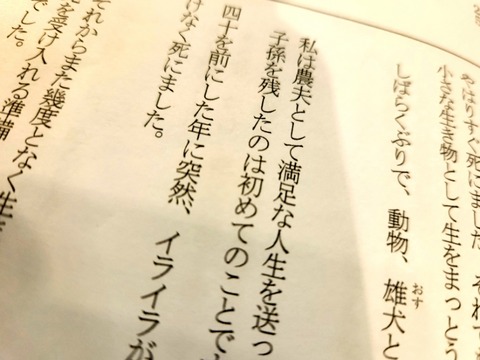 やはりすぐ死にました。それで
小さな生き物として生をまっとう
しばらくぶりで、動物、雄犬と
おす
私は農夫として満足な人生を送っ
子孫を残したのは初めてのことで
四十を前にした年に突然、イライラが
けなく死にました。
それからまた幾度となく生
を受け入れる準備
でした。